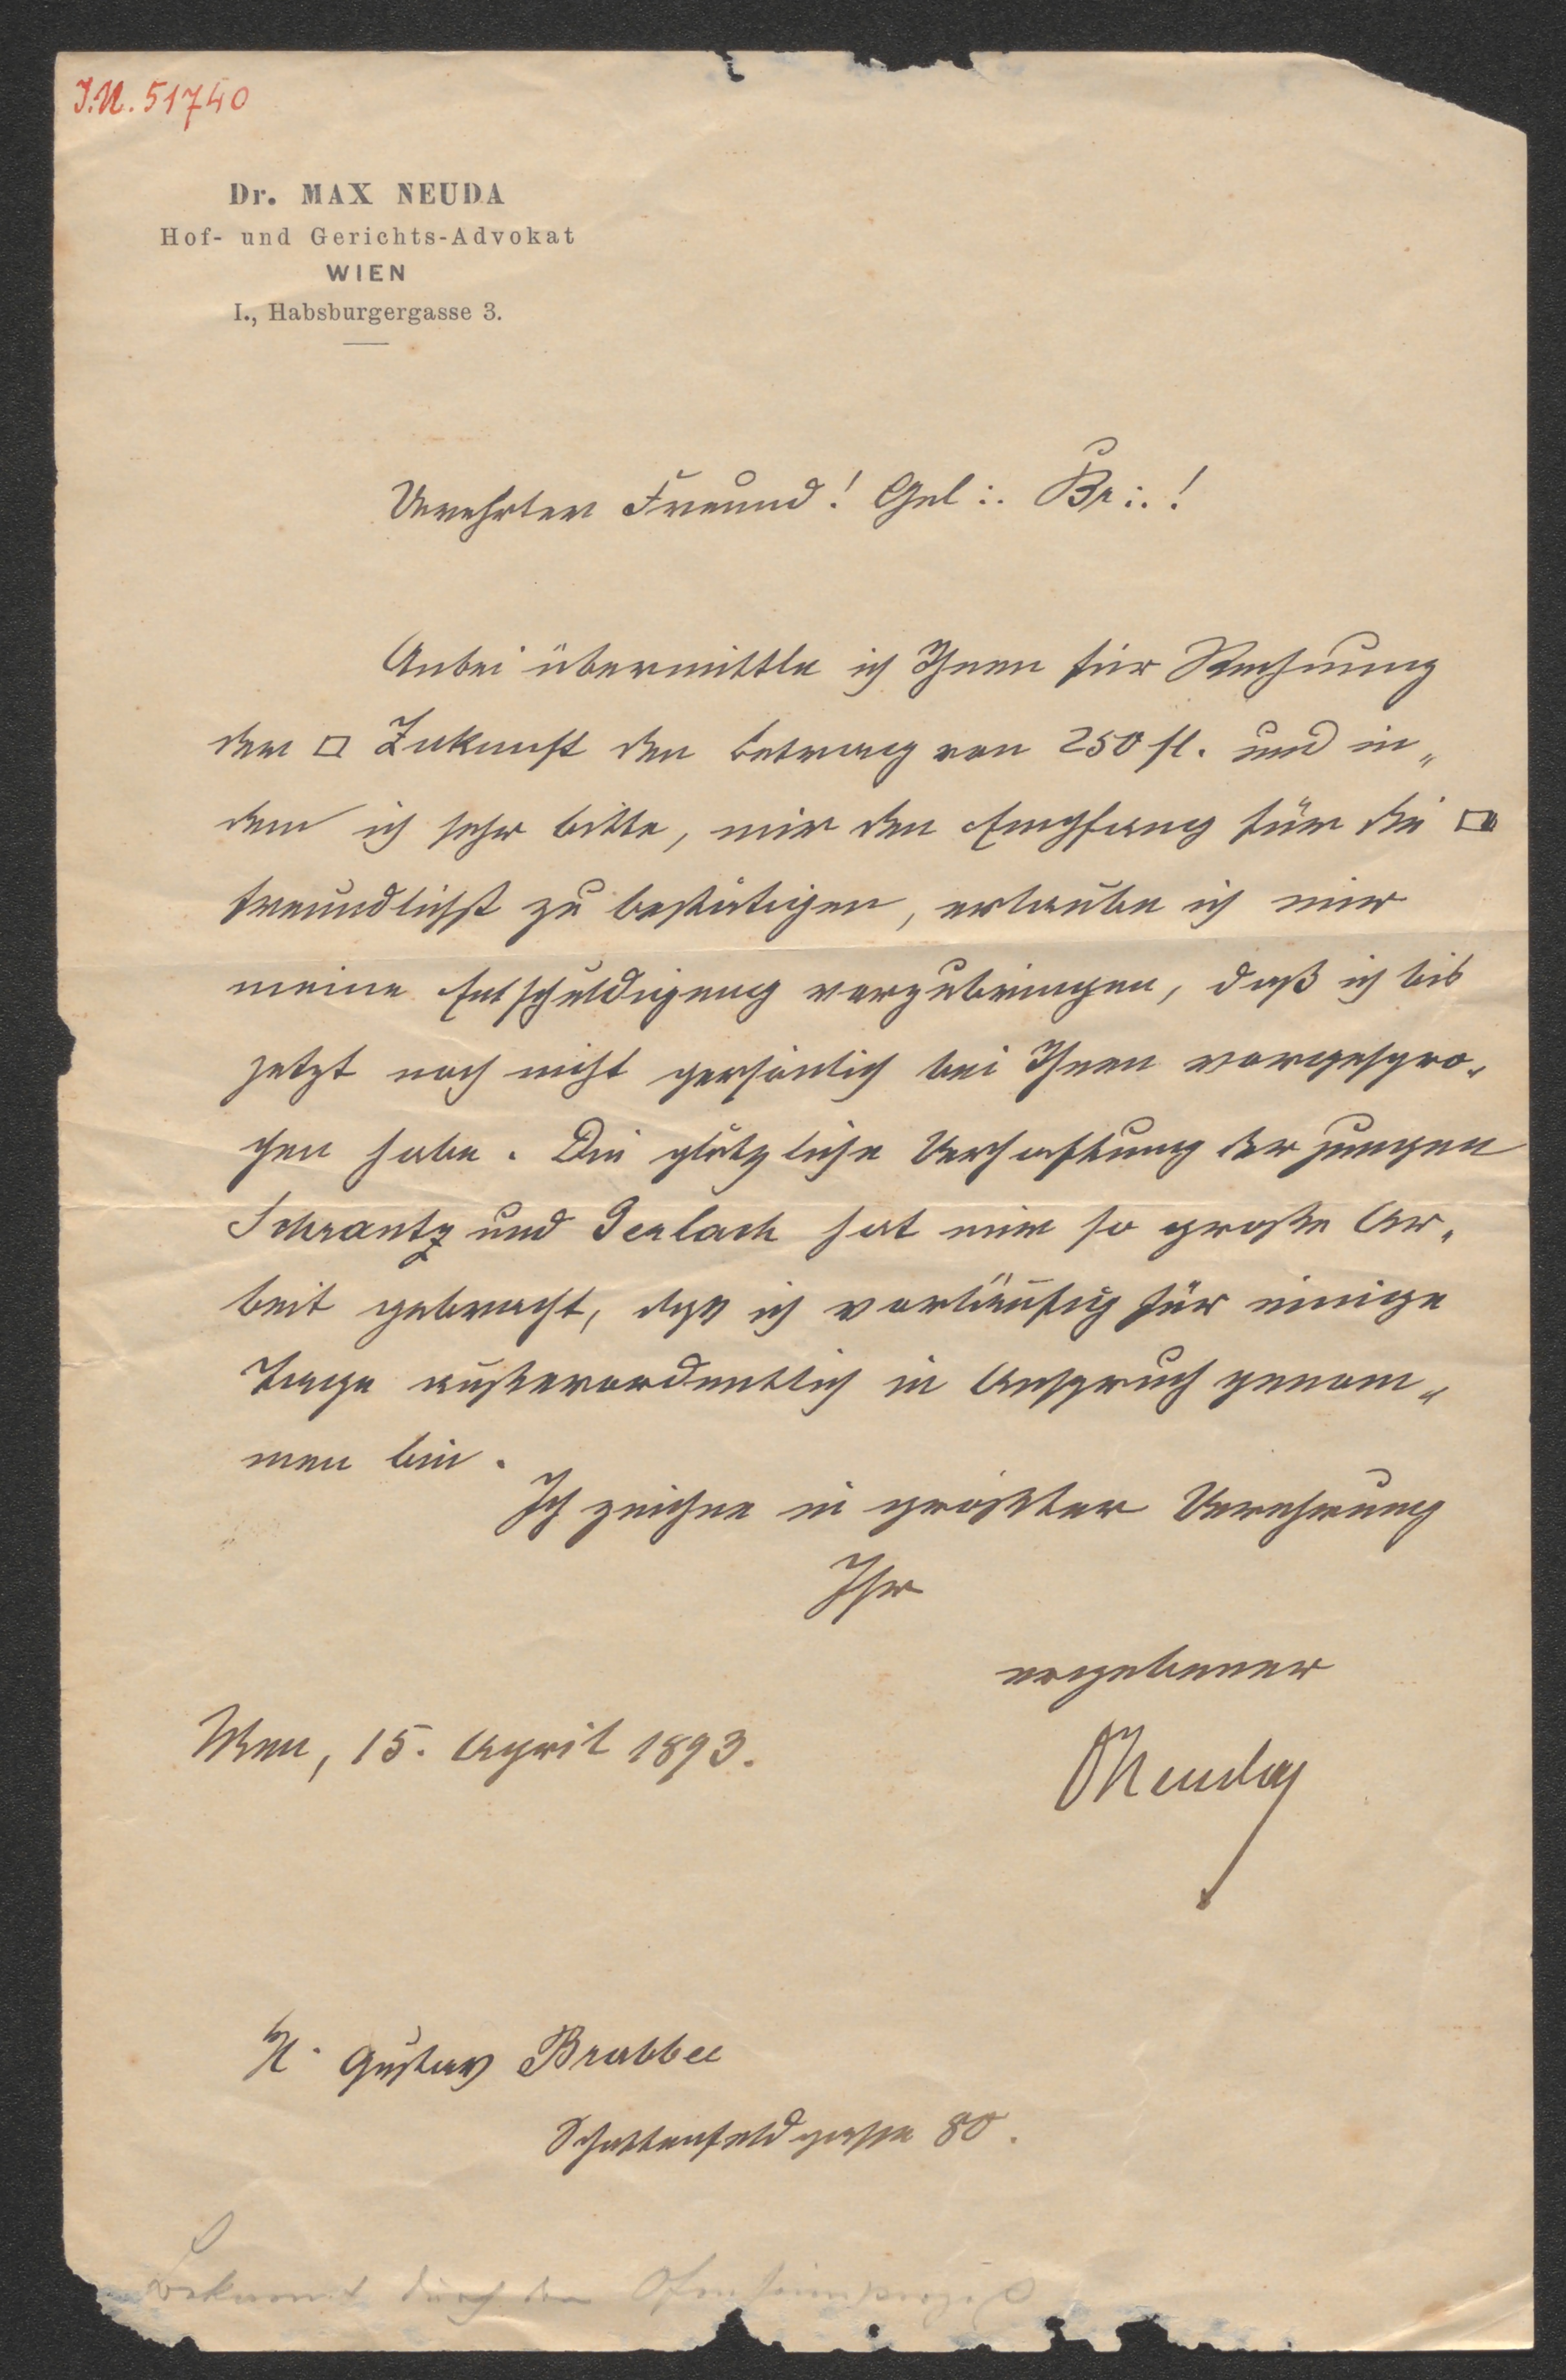 I.N. 51740
Dr. MAX NEUDA
Hof- und Gerichts-Advokat
WIEN
I., Habsburgergasse 3.
Verehrter Freund! Gel∴ Br∴!
Anbei übermittle ich Ihnen für Rechnung
der □ Zukunft den Betrag von 250 fl. und in„
dem ich sehr bitte, mir den Empfang für die □
freundlichst zu bestätigen, erlaube ich mir
meine Entschuldigung vorzubringen, daß ich bis
jetzt noch nicht persönlich bei Ihnen vorgespro„
chen habe. Die plötzliche Verhaftung der jungen
Schrantz und Gerlach hat mir so große Ar„
beit gebracht, daß ich vorläufig für einige
Tage außerordentlich in Anspruch genom„
men bin.
Ich zeichne in größter Verehrung
Ihr
ergebener
Wien, 15. April 1893.
MNeuda
H. Gustav Brabbee
Schottenfeldgasse 80.
Bekannt durch den Ofenheimprozeß